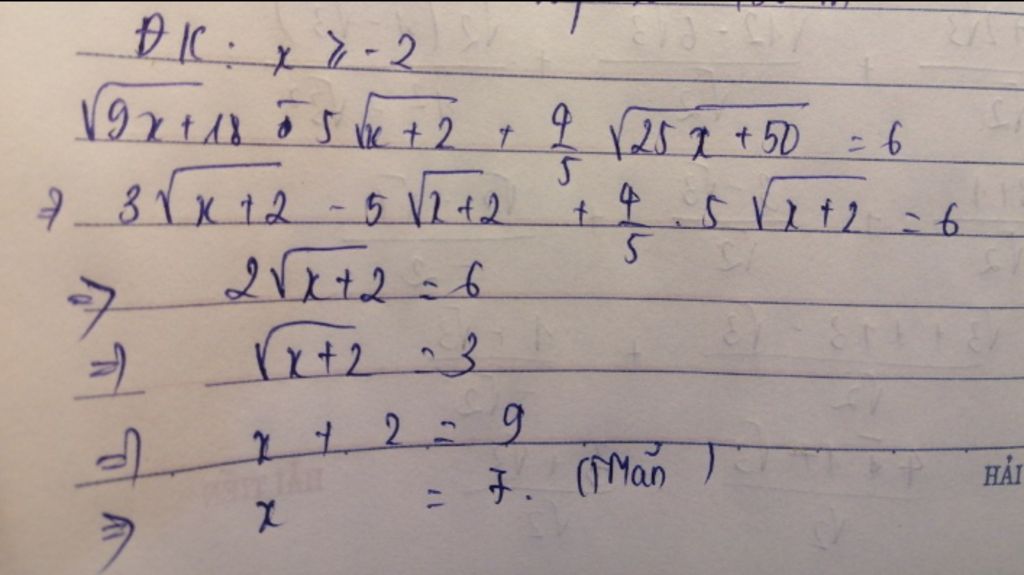 ĐK: x ≥ -2
√9x+18 - 5√x+2 + 4/5 √25x+50 = 6
⇒ 3√x+2 - 5√x+2 + 4/5 . 5√x+2 = 6
⇒ 2√x+2 = 6
⇒ √x+2 = 3
⇒ x + 2 = 9
⇒ x = 7. (TMãn)
HẢI